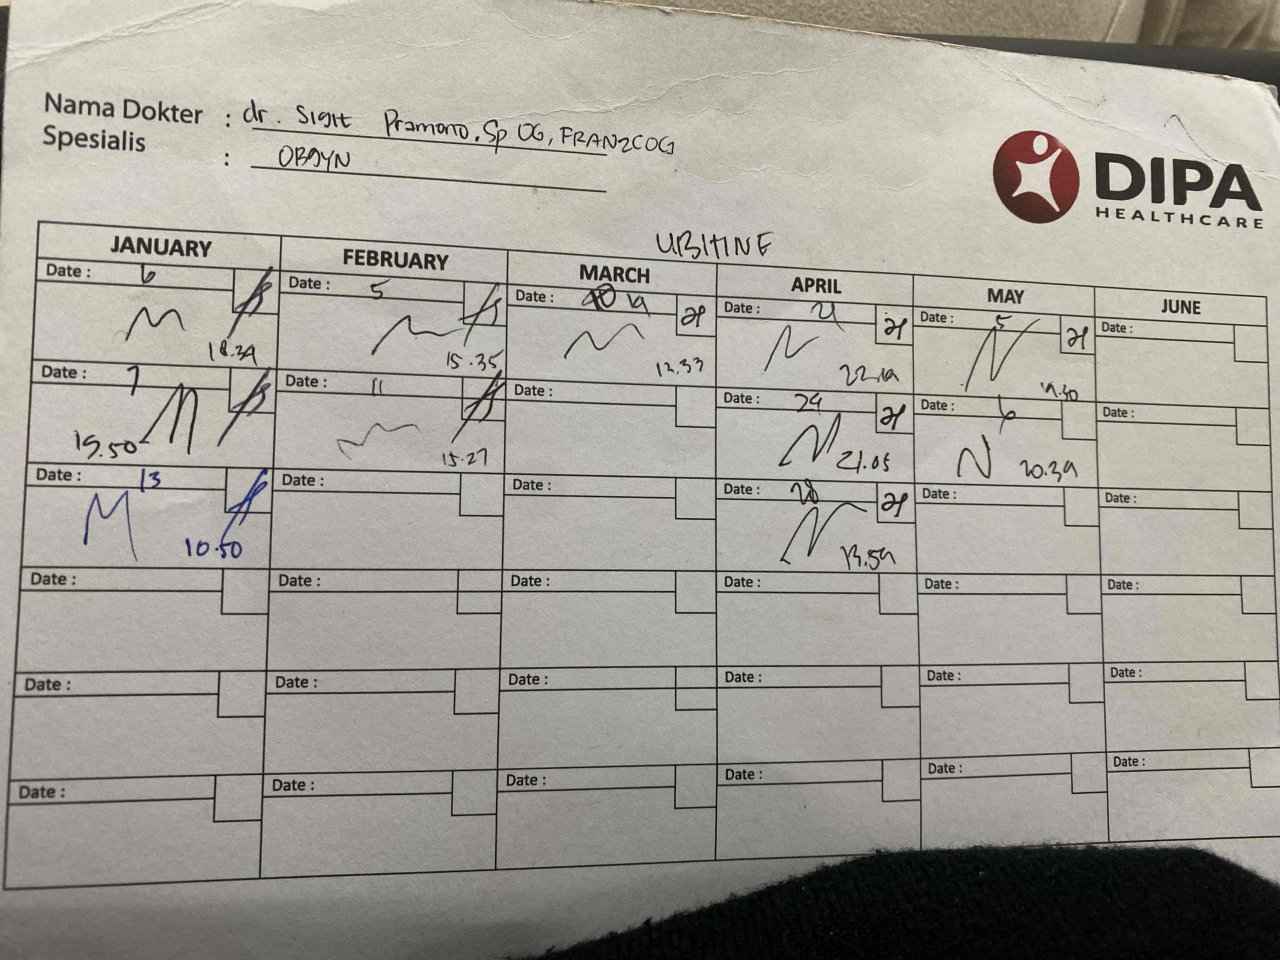 Nama Dokter : dr. Sigit Pramono. Sp OG, FRANZCOG
Spesialis : OBGYN
DIPA
HEALTHCARE
UBITINE
JANUARY FEBRUARY MARCH APRIL MAY JUNE
Date : 6 Date : 5 Date : 19 Date : 21 Date : 5 Date :
18.39 15.35 12.33 22.19 19.30
Date : 7 Date : 11 Date : Date : 24 Date : 6 Date :
19.50 15.27 21.05 20.39
Date : 13 Date : Date : Date : 28 Date : Date :
10.50 13.59
Date : Date : Date : Date : Date : Date :
Date : Date : Date : Date : Date : Date :
Date : Date : Date : Date : Date : Date :